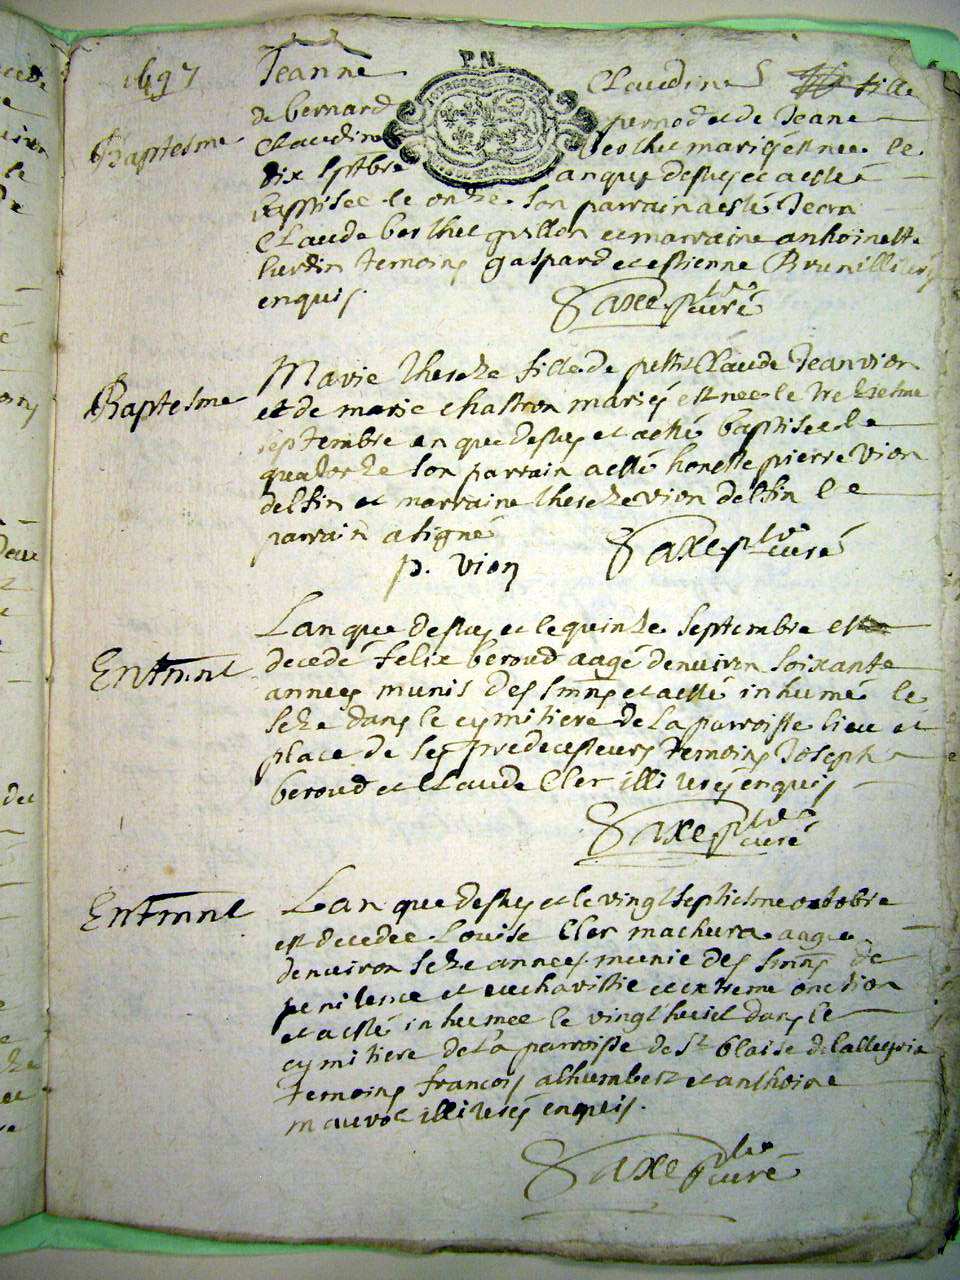 1697 Jeanne Claudine fille
Baptesme de bernard pernod et de Jeane
Claudine berthet mariés est nee le
dix sptbre an que desus et a esté
baptisee le onze son parrain a esté Jean
Claude berthet guillon et marraine anthoinette
hurdin temoins gaspard et estienne Brun illiterés
enquis. Saxe ptre curé
P.N.
Marie thereze fille de petit Claude Jeanvion
Baptesme et de marie chastron mariés est nee le treziesme
septembre an que desus et a esté baptisee le
quatorze son parrain a esté honeste pierre vion
delfin et marraine thereze vion delfin le
parrain a signé
p. vion Saxe ptre curé
Lan que desus et le quinze septembre est
Entmnt decedé felix beroud aagé denuiron soixante
annees munis des smns et a esté inhumé le
seze dans le cymitiere de la parroisse lieu et
place de ses predecesseurs temoins Joseph
beroud et Claude Cler illiterés enquis
Saxe ptre curé
Entmnt Lan que desus et le vingt septiesme octobre
est decedee Louise Cler machura aagee
denuiron seze annees munie des smns de
penitence et eucharistie et extreme onction
et a esté inhumee le vingt huict dans le
cymitiere de la parroisse de St blaise
temoins francois alhumbert et anthoine
mauvot illiterés enquis.
Saxe ptre curé